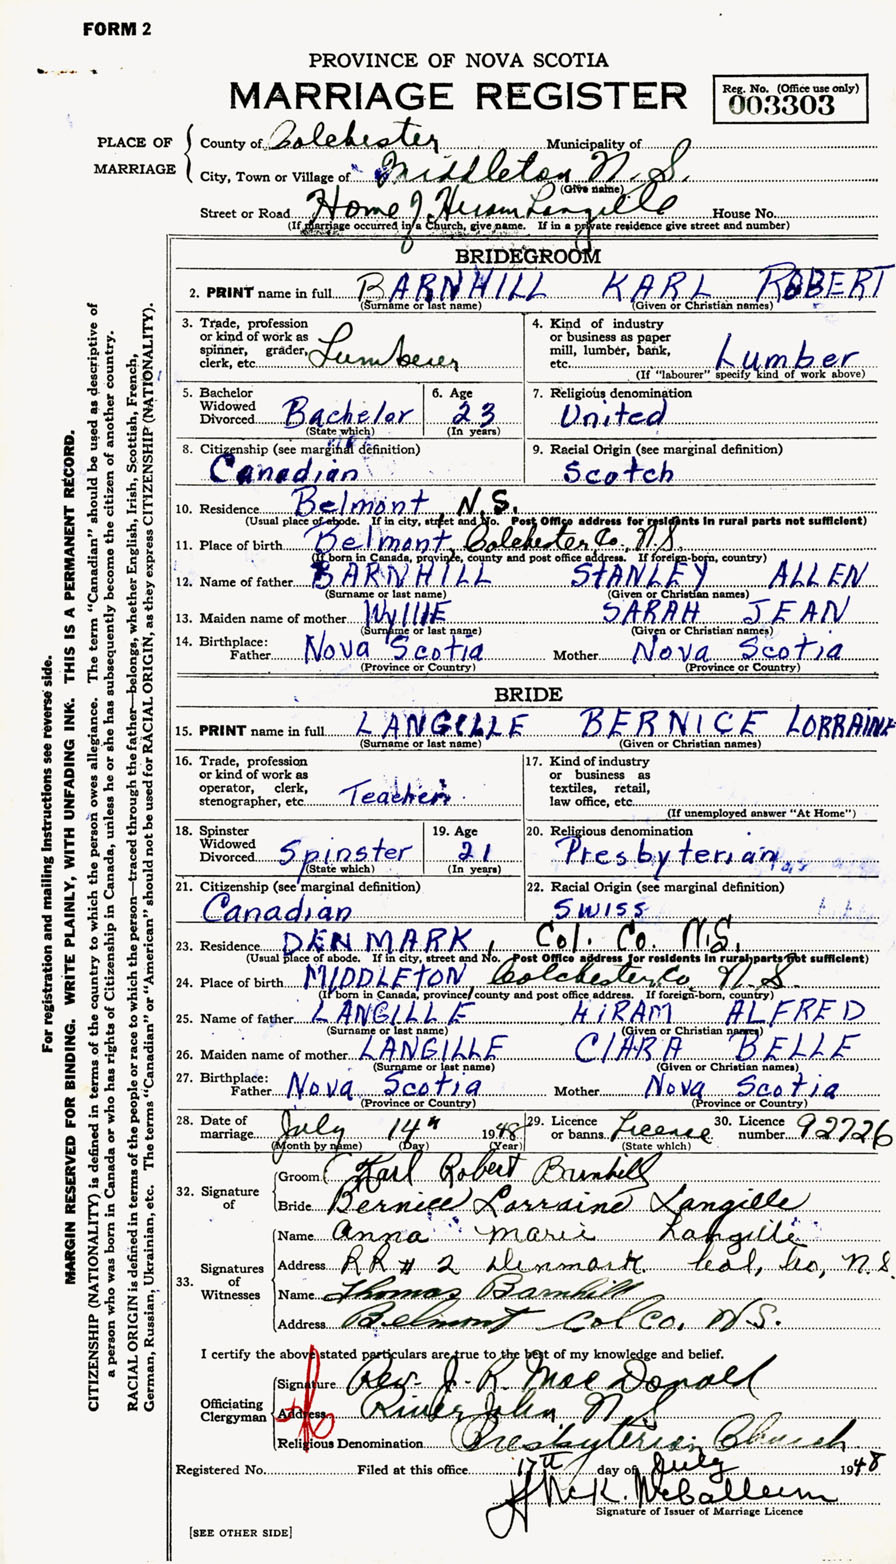 FORM 2
PROVINCE OF NOVA SCOTIA
MARRIAGE REGISTER
Reg. No. (Office use only)
003303
PLACE OF MARRIAGE
County of Colchester Municipality of
City, Town or Village of Middleton N.S.
(Give name)
Street or Road Home of Hiram Langille House No.
(If marriage occurred in a Church, give name. If in a private residence give street and number)
BRIDEGROOM
2. PRINT name in full BARNHILL KARL ROBERT
(Surname or last name) (Given or Christian names)
3. Trade, profession or kind of work as spinner, grader, clerk, etc.
4. Kind of industry or business as paper mill, lumber, bank, etc. Lumber
(If "labourer" specify kind of work above)
5. Bachelor Widowed Divorced Bachelor
(State which)
6. Age 23
(In years)
7. Religious denomination
United
8. Citizenship (see marginal definition)
Canadian
9. Racial Origin (see marginal definition)
Scotch
10. Residence Belmont, N.S.
(Usual place of abode. If in city, street and No. Post Office address for residents in rural parts not sufficient)
11. Place of birth Belmont, Colchester Co., N.S.
(If born in Canada, province, county and post office address. If foreign-born, country)
12. Name of father BARNHILL STANLEY ALLEN
(Surname or last name) (Given or Christian names)
13. Maiden name of mother WYLLIE SARAH JEAN
(Surname or last name) (Given or Christian names)
14. Birthplace:
Father Nova Scotia Mother Nova Scotia
(Province or Country) (Province or Country)
BRIDE
15. PRINT name in full LANGILLE BERNICE LORRAINE
(Surname or last name) (Given or Christian names)
16. Trade, profession or kind of work as operator, clerk, stenographer, etc. Teacher
17. Kind of industry or business as textiles, retail, law office, etc.
(If unemployed answer "At Home")
18. Spinster Widowed Divorced Spinster
(State which)
19. Age 21
(In years)
20. Religious denomination
Presbyterian
21. Citizenship (see marginal definition)
Canadian
22. Racial Origin (see marginal definition)
Swiss
23. Residence DENMARK, Col. Co. N.S.
(Usual place of abode. If in city, street and No. Post Office address for residents in rural parts not sufficient)
24. Place of birth MIDDLETON, Colchester Co. N.S.
(If born in Canada, province, county and post office address. If foreign-born, country)
25. Name of father LANGILLE HIRAM ALFRED
(Surname or last name) (Given or Christian names)
26. Maiden name of mother LANGILLE CLARA BELLE
(Surname or last name) (Given or Christian names)
27. Birthplace:
Father Nova Scotia Mother Nova Scotia
(Province or Country) (Province or Country)
28. Date of marriage July 14th 1948
(Month by name) (Day) (Year)
29. Licence or banns License
(State which)
30. Licence number 92726
32. Signature of
Groom Karl Robert Barnhill
Bride Bernice Lorraine Langille
33. Signatures of Witnesses
Name Anna Marie Langille
Address R R # 2 Denmark Col, Co, N.S.
Name Thomas Barnhill
Address Belmont Col Co, N.S.
I certify the above stated particulars are true to the best of my knowledge and belief.
Officiating Clergyman
Signature Rev. J. R. MacDonald
Address River John, N.S
Religious Denomination Presbyterian Church
Registered No. Filed at this office 17th day of July 1948
McCallum
Signature of Issuer of Marriage Licence
[SEE OTHER SIDE]
For registration and mailing instructions see reverse side.
MARGIN RESERVED FOR BINDING. WRITE PLAINLY, WITH UNFADING INK. THIS IS A PERMANENT RECORD.
CITIZENSHIP (NATIONALITY) is defined in terms of the country to which the person owes allegiance. The term "Canadian" should be used as descriptive of
a person who was born in Canada or who has rights of Citizenship in Canada, unless he or she has subsequently become the citizen of another country.
RACIAL ORIGIN is defined in terms of the people or race to which the person—traced through the father—belongs, whether English, Irish, Scottish, French,
German, Russian, Ukrainian, etc. The terms "Canadian" or "American" should not be used for RACIAL ORIGIN, as they express CITIZENSHIP (NATIONALITY).